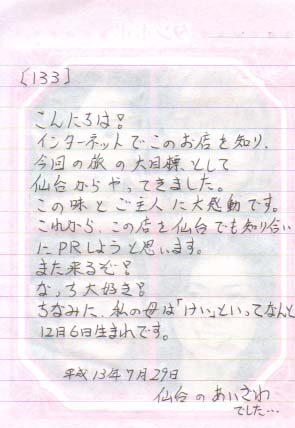 [133]
こんにちは!
インターネットでこのお店を知り、
今回の旅の大目標として
仙台からやってきました。
この味とご主人に大感動です。
これから、この店を仙台でも知り合い
にPRしようと思います。
また来るぞ!
なっち大好き!
ちなみに、私の母は「けい」といってなんと
12月6日生まれです。
平成13年7月29日
仙台のあいざわ
でした…